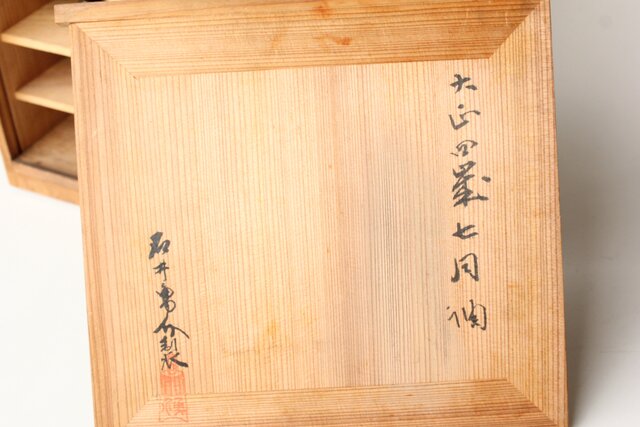 大正四歳七月調
石井勇介製